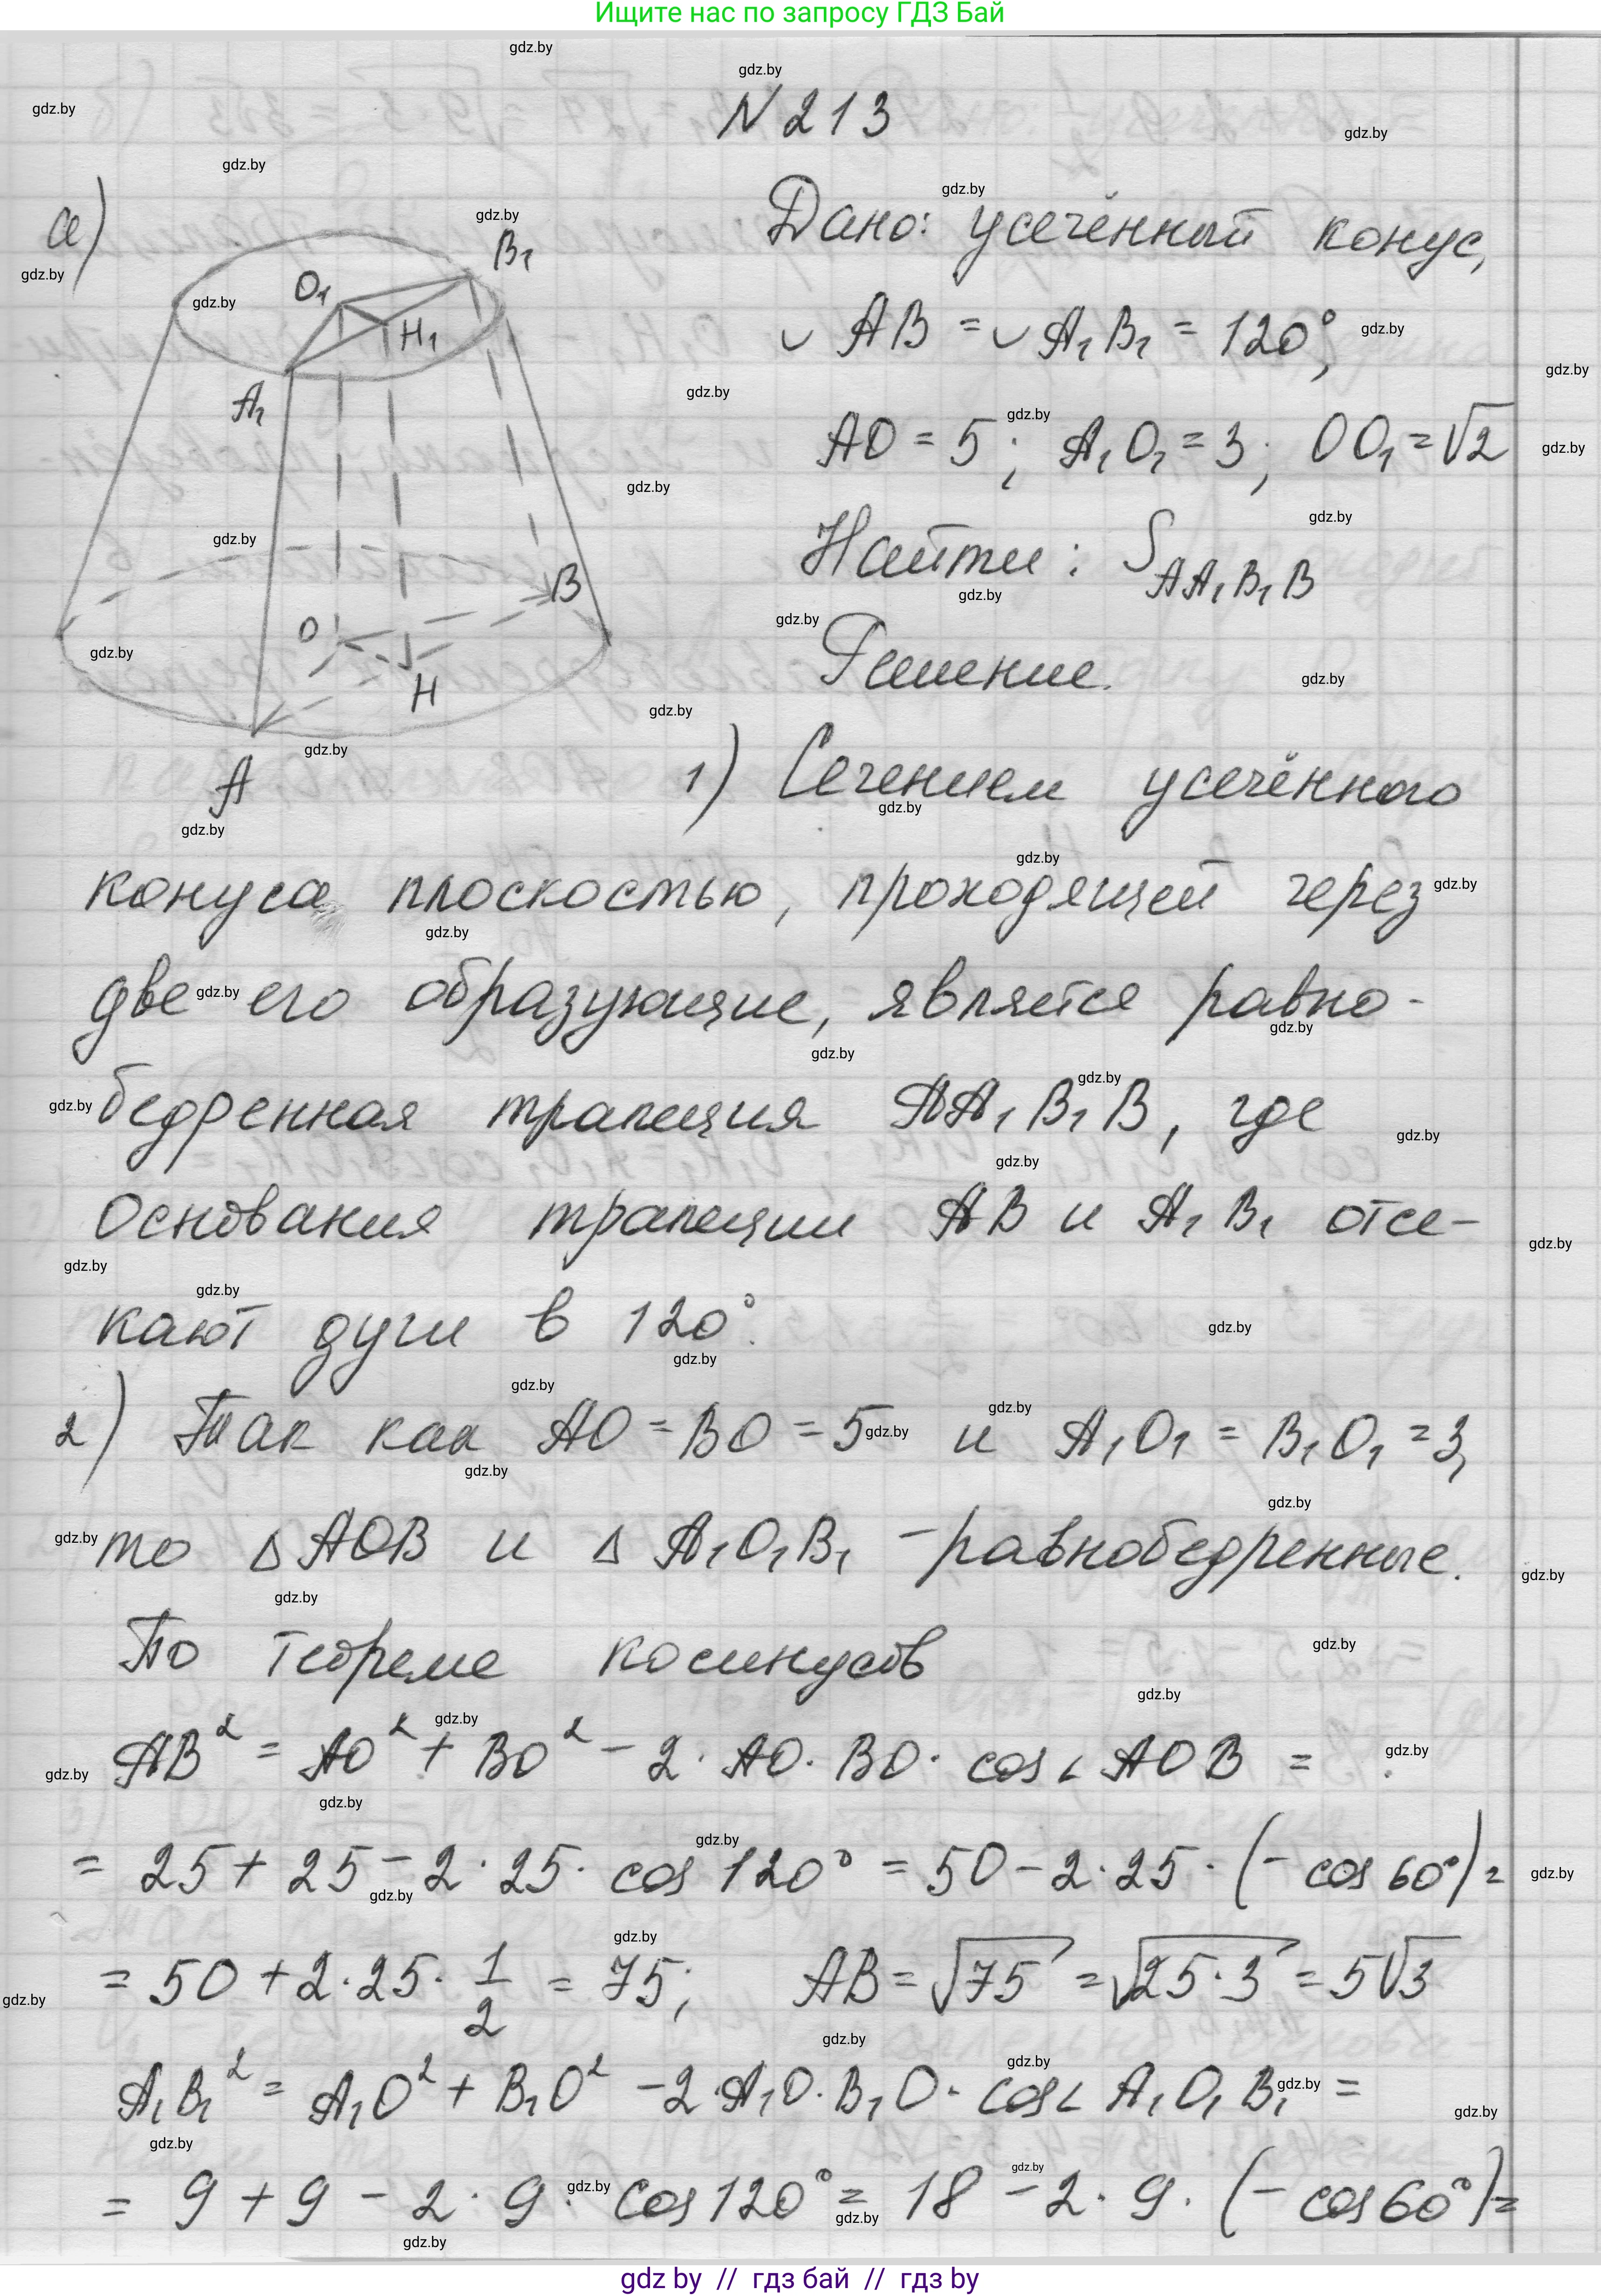 Ищите нас по запросу ГДЗ Бай
N 213
а)
Дано: усечённый конус,
◡ AB = ◡ A₁B₁ = 120°,
AO = 5; A₁O₁ = 3; OO₁ = √2
Найти: S AA₁B₁B
Решение.
B₁
O₁
H₁
A₁
B
O
H
A
1) Сечением усечённого
конуса плоскостью, проходящей через
две его образующие, является равно-
бедренная трапеция AA₁B₁B, где
основания трапеции AB и A₁B₁ отсе-
кают дуги в 120°.
2) Так как AO = BO = 5 и A₁O₁ = B₁O₁ = 3,
то △ AOB и △ A₁O₁B₁ - равнобедренные.
По теореме косинусов
AB² = AO² + BO² - 2 · AO · BO · cos∠AOB =
= 25 + 25 - 2 · 25 · cos 120° = 50 - 2 · 25 · (- cos 60°) =
= 50 + 2 · 25 · 1/2 = 75; AB = √75 = √25·3 = 5√3
A₁B₁² = A₁O² + B₁O² - 2 · A₁O · B₁O · cos∠A₁O₁B₁ =
= 9 + 9 - 2 · 9 · cos 120° = 18 - 2 · 9 · (- cos 60°) =
gdz by // гдз бай // гдз by